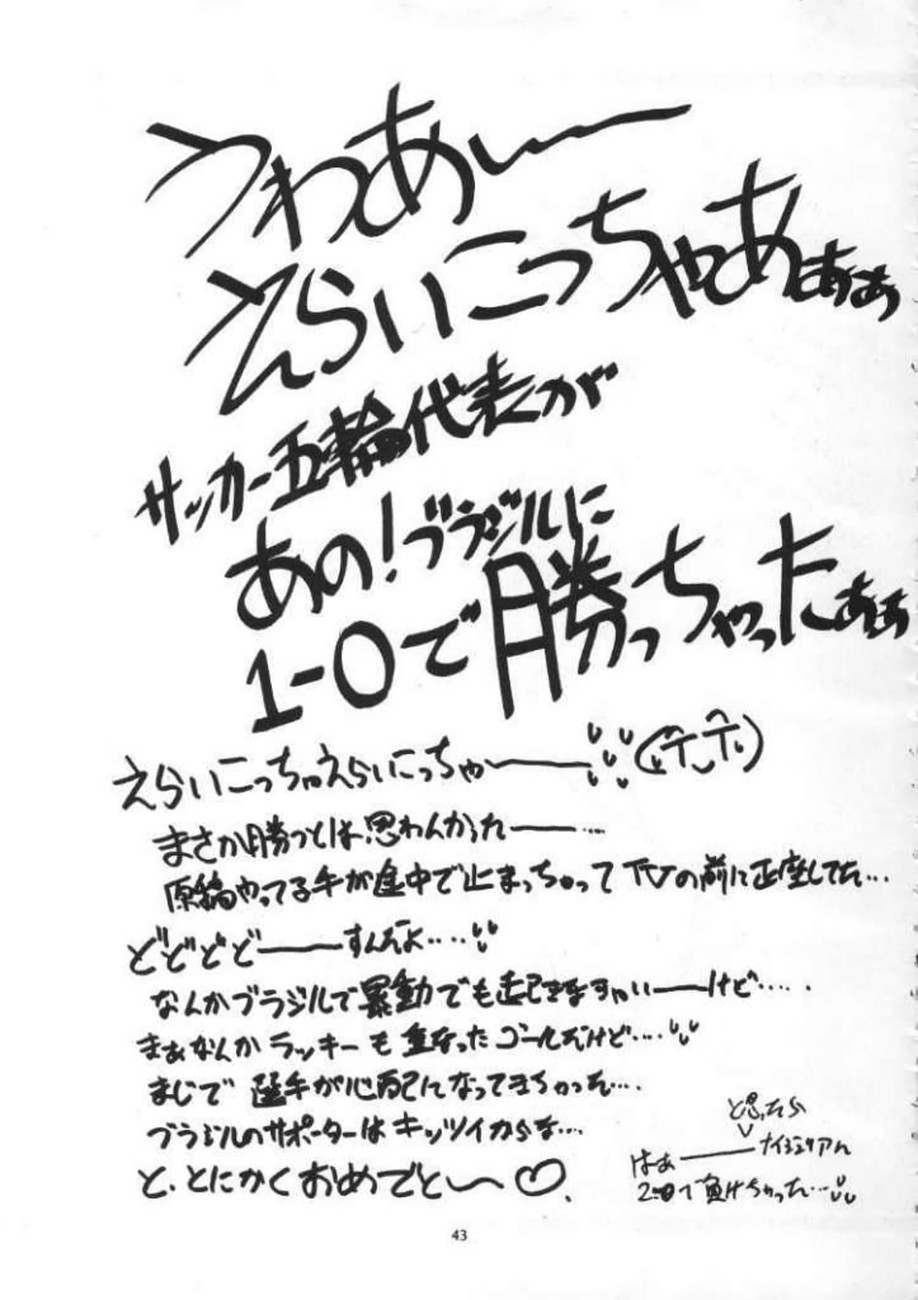 うわあぃーー
えらいこっちゃあぁぁ
サッカー五輪代表が
あの!ブラジルに
1-0で勝っちゃったぁぁ
えらいこっちゃえらいこっちゃーー
まさか勝つとは思わんかった――…
原稿やってる手が途中で止まっちゃってTVの前に正座してた…
どどどど――すんだよ‥‥
なんかブラジルで暴動でも起きなきゃいーけど‥‥‥
まぁなんかラッキーも重なったゴールだけど‥‥
まじで選手が心配になってきちゃった…
ブラジルのサポーターはキッツイからな…
と、とにかくおめでと〜♡
と思ったら
はぁ―― ナイジェリアに
2-0で負けちゃった…
43